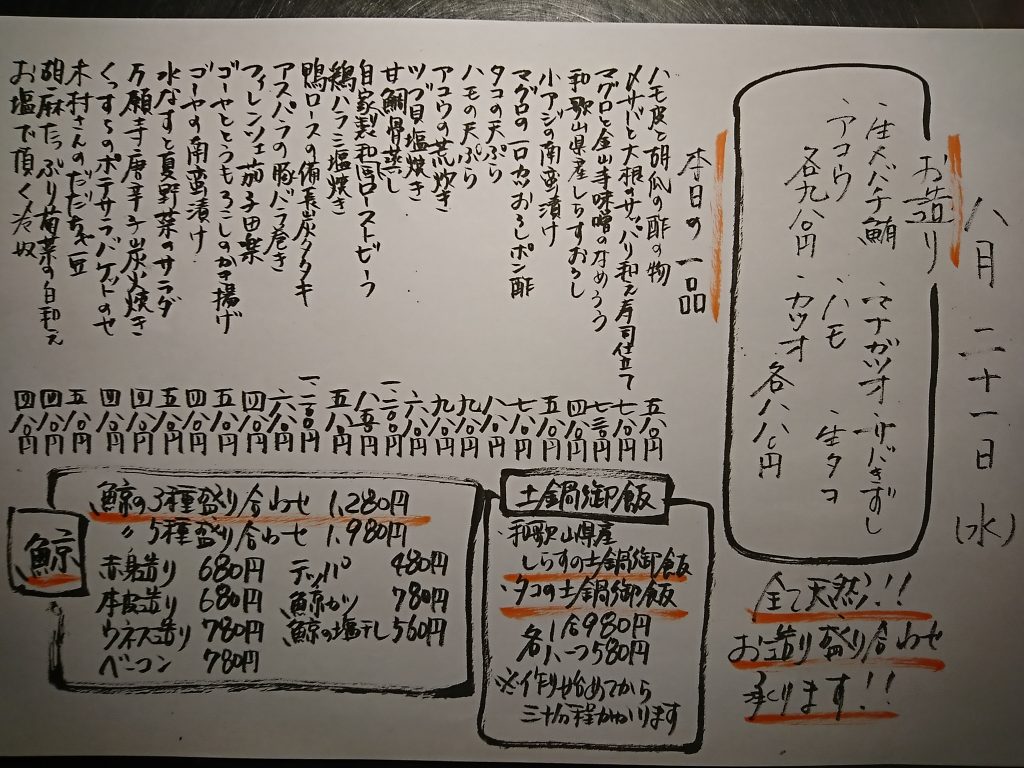 八月二十一日(水)
お造り
・生メバチ鮪 ・マナガツオ ・サバきずし
・アコウ ・ハモ ・生タコ
各九八〇円 ・カツオ 各八八〇円
全て天然!!
お造り盛り合わせ
承ります!!
本日の一品
ハモ皮と胡瓜の酢の物 五八〇円
〆サバと大根のサッパリ和え寿司仕立て 七八〇円
マグロと金山寺味噌のなめろう 七三〇円
和歌山県産しらすおろし 四八〇円
小アジの南蛮漬け 五八〇円
マグロの一口カツおろしポン酢 七八〇円
タコの天ぷら 八八〇円
ハモの天ぷら 九八〇円
アコウの荒炊き 九八〇円
ツブ貝塩焼き 六八〇円
甘鯛骨蒸し 一、二八〇円
自家製和風ローストビーフ 八五〇円
鶏ハラミ塩焼き 五八〇円
鴨ロースの備長炭タタキ 一、二〇〇円
アスパラの豚バラ巻き 六八〇円
フィレンツェ茄子田楽 四八〇円
ゴーヤととうもろこしのかき揚げ 五八〇円
ゴーヤの南蛮漬け 四八〇円
水なすと夏野菜のサラダ 五八〇円
万願寺唐辛子炭火焼き 四八〇円
くんすらのポテサラバケットのせ 四八〇円
木村さんのだだちゃ豆 五八〇円
胡麻たっぷり菊菜の白和え 四八〇円
お塩で頂く冷奴 四八〇円
土鍋御飯
・和歌山県産
しらすの土鍋御飯
・タコの土鍋御飯
各1合980円
各ハーフ580円
※作り始めてから
三十分程かかります
鯨
鯨の3種盛り合わせ 1,280円
〃5種盛り合わせ 1,980円
赤身造り 680円 テッパ 480円
本皮造り 680円 鯨カツ 780円
ウネス造り 780円 鯨の塩干し 560円
ベーコン 780円